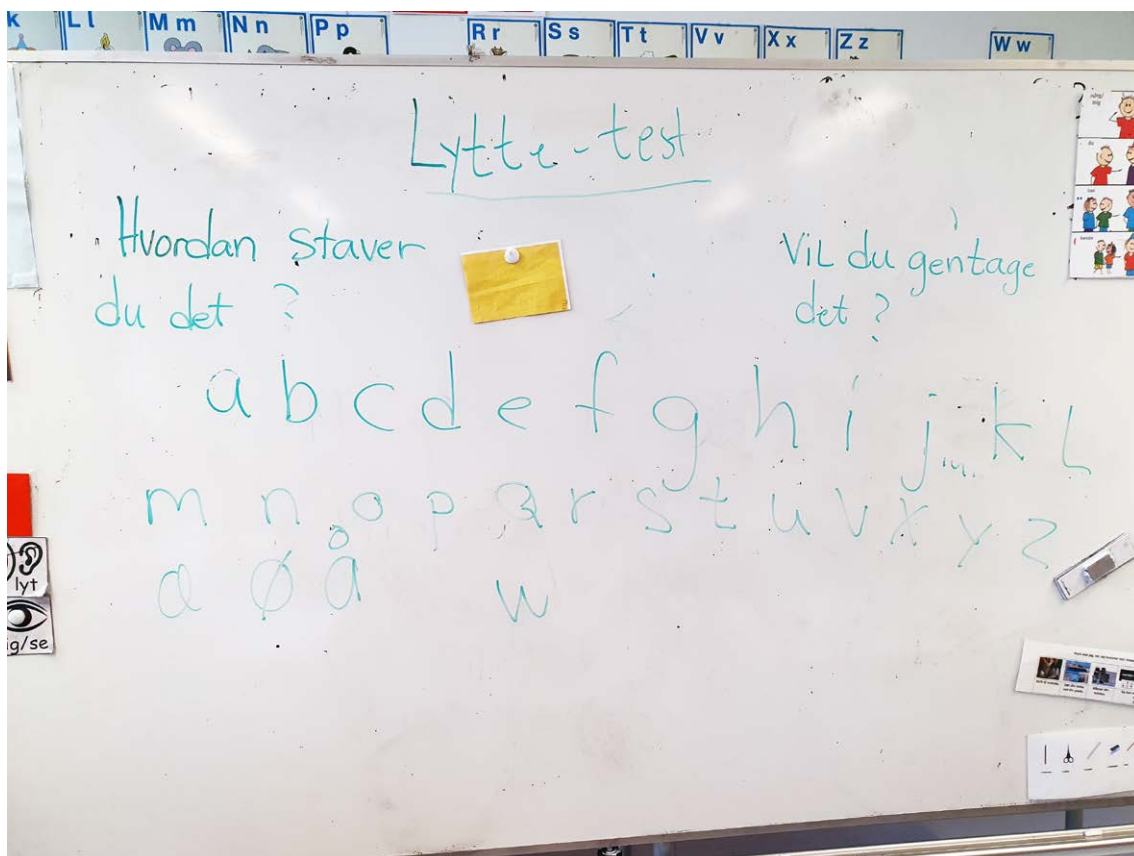 k Ll Mm Nn Pp Rr Ss Tt Vv Xx Zz Ww
Lytte-test
Hvordan staver
du det ?
Vil du gentage
det ?
a b c d e f g h i j k L
m n o p Q r s t u v x y z
æ ø å w
lyt
ig/se
du